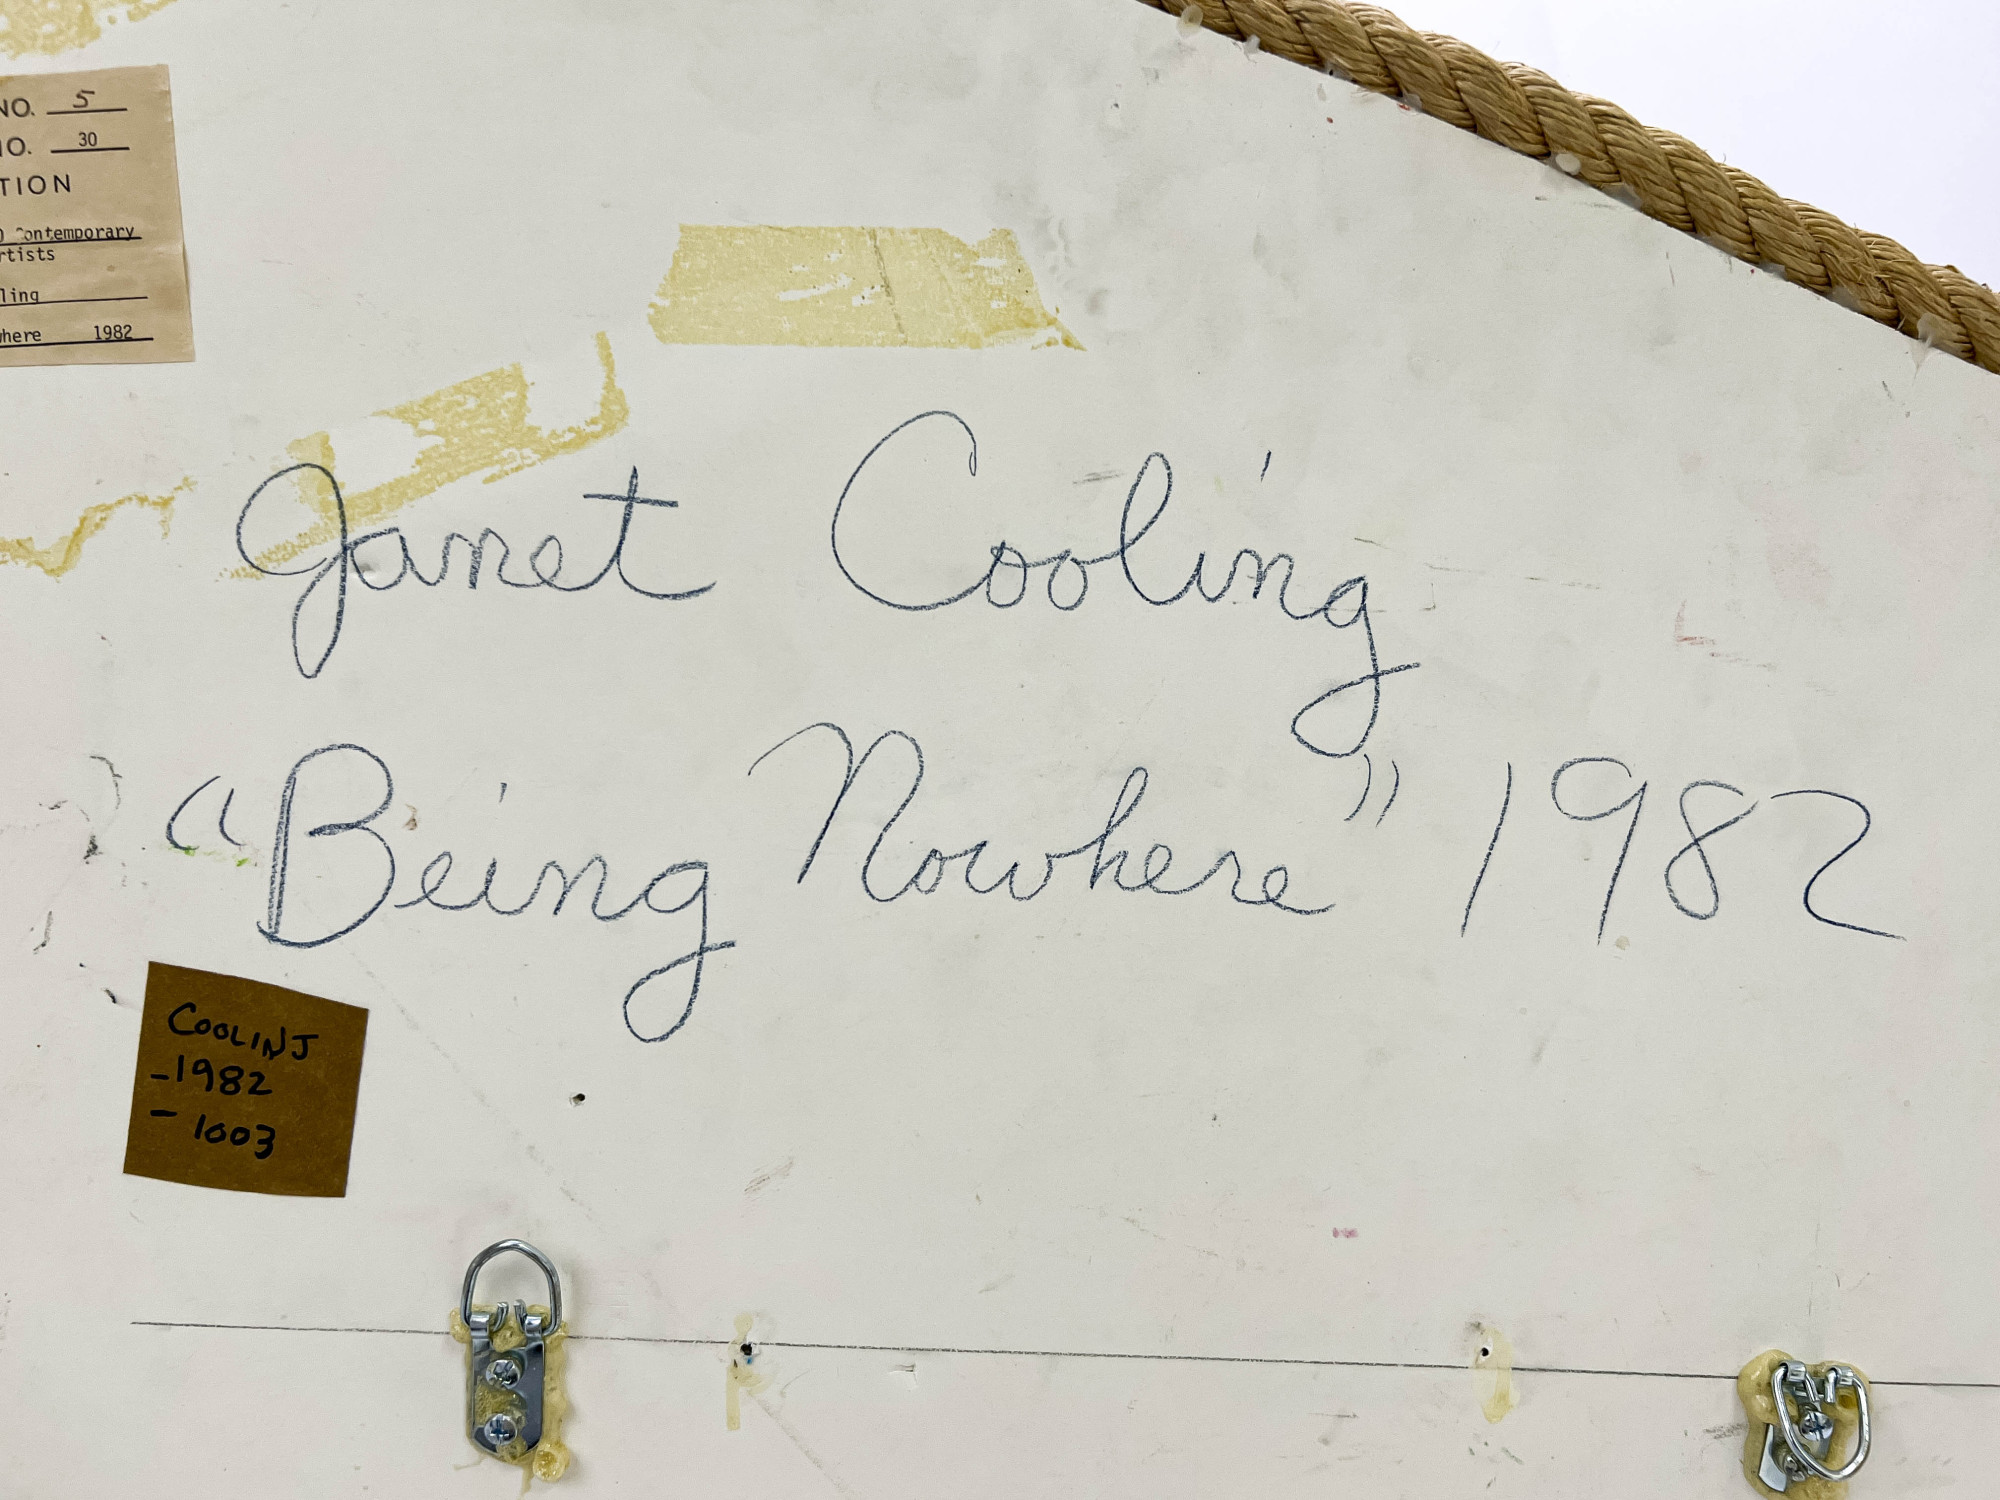 NO. 5
NO. 30
TION
0 Contemporary
rtists
ling
where 1982
Janet Cooling
“Being Nowhere” 1982
COOLINJ
-1982
- 1003